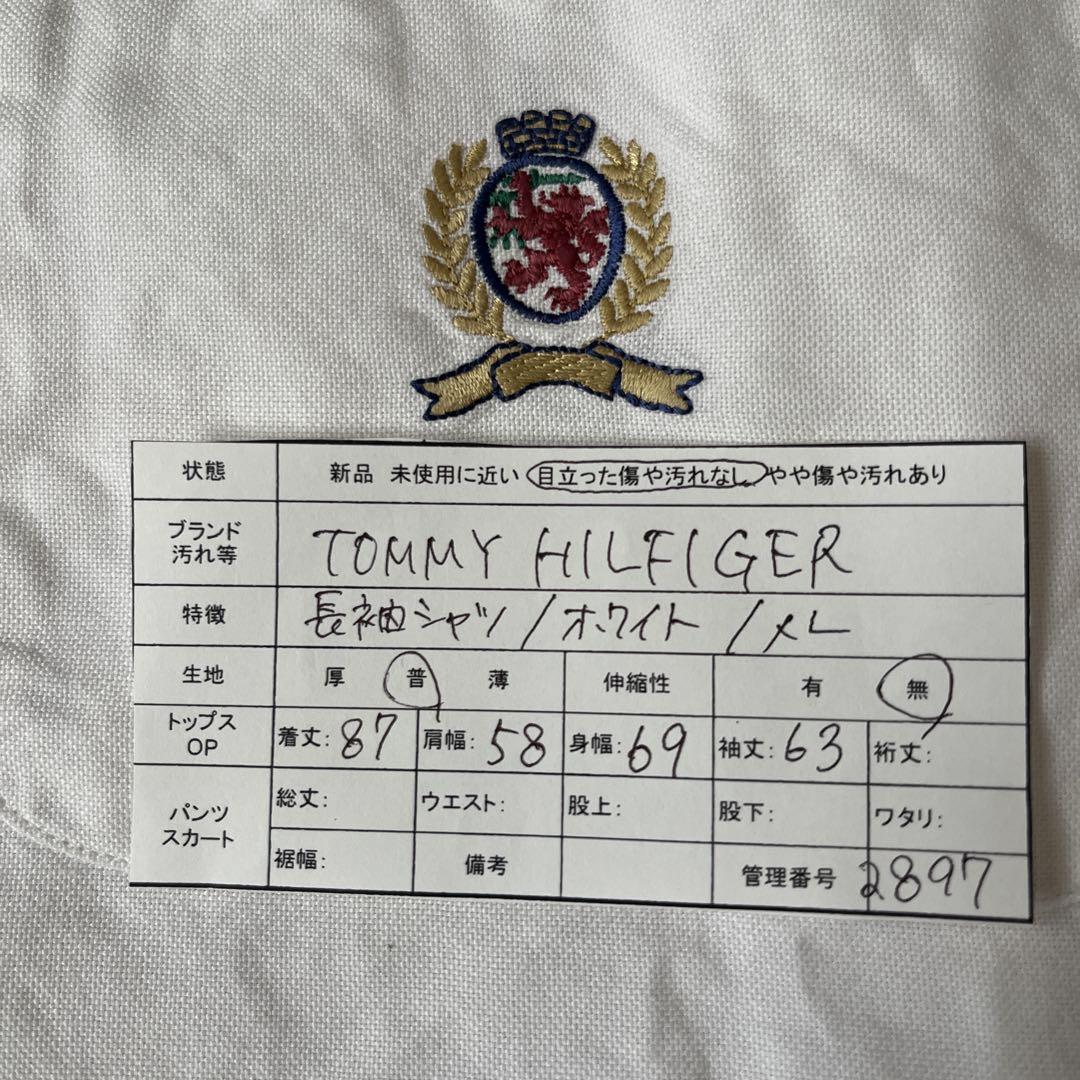 状態 新品 未使用に近い 目立った傷や汚れなし やや傷や汚れあり
ブランド
汚れ等 TOMMY HILFIGER
特徴 長袖シャツ/ホワイト/XL
生地 厚 普 薄 伸縮性 有 無
トップス
OP 着丈:87 肩幅:58 身幅:69 袖丈:63 裄丈:
パンツ
スカート 総丈: ウエスト: 股上: 股下: ワタリ:
裾幅: 備考 管理番号 2897